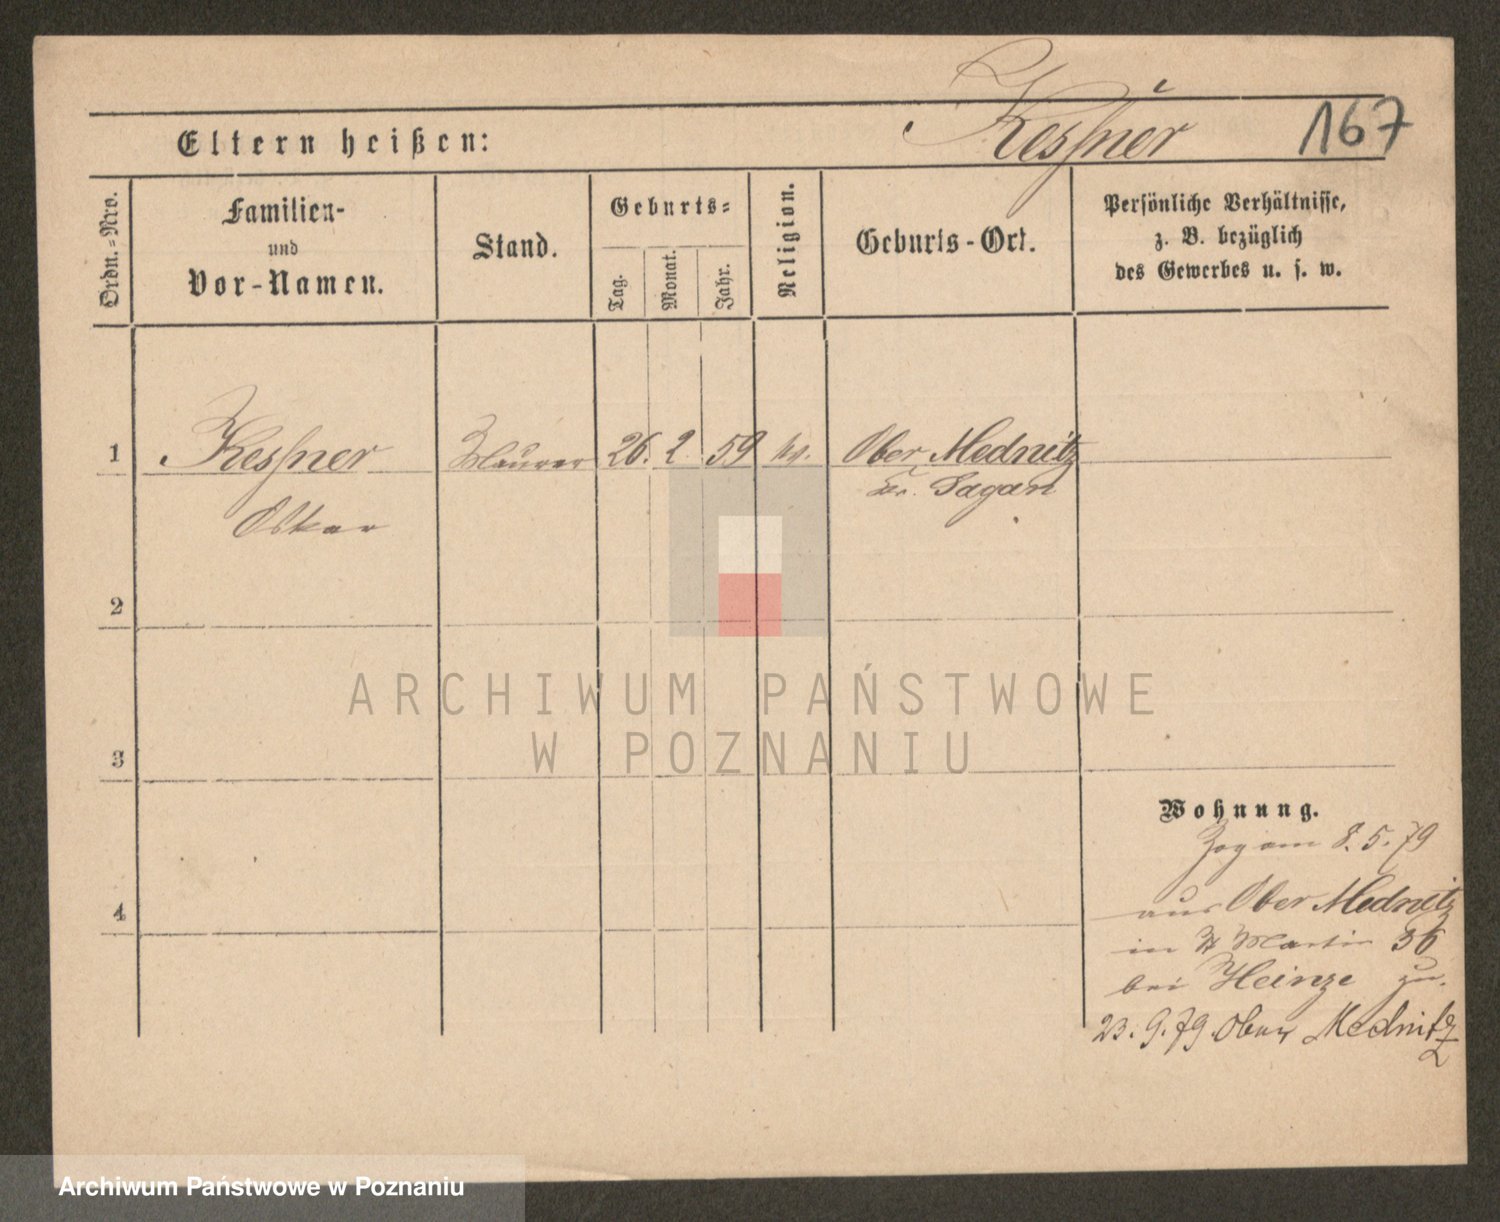 Keßner 167
Eltern heißen:
Ordn.=Nro.
Familien-
und
Vor-Namen.
Stand.
Geburts=
Tag.
Monat.
Jahr.
Religion.
Geburts-Ort.
Persönliche Verhältnisse,
z. B. bezüglich
des Gewerbes u. s. w.
1 Keßner Maurer 26. 2. 59 ev. Ober Mednitz
Kr. Sagan
Oskar
2
3
4
ARCHIWUM PAŃSTWOWE
W POZNANIU
Wohnung.
Zog am 8. 5. 79
aus Ober Mednitz
in St Martin 36
bei Heinze zu.
23. 9. 79. Ober Mednitz
Archiwum Państwowe w Poznaniu